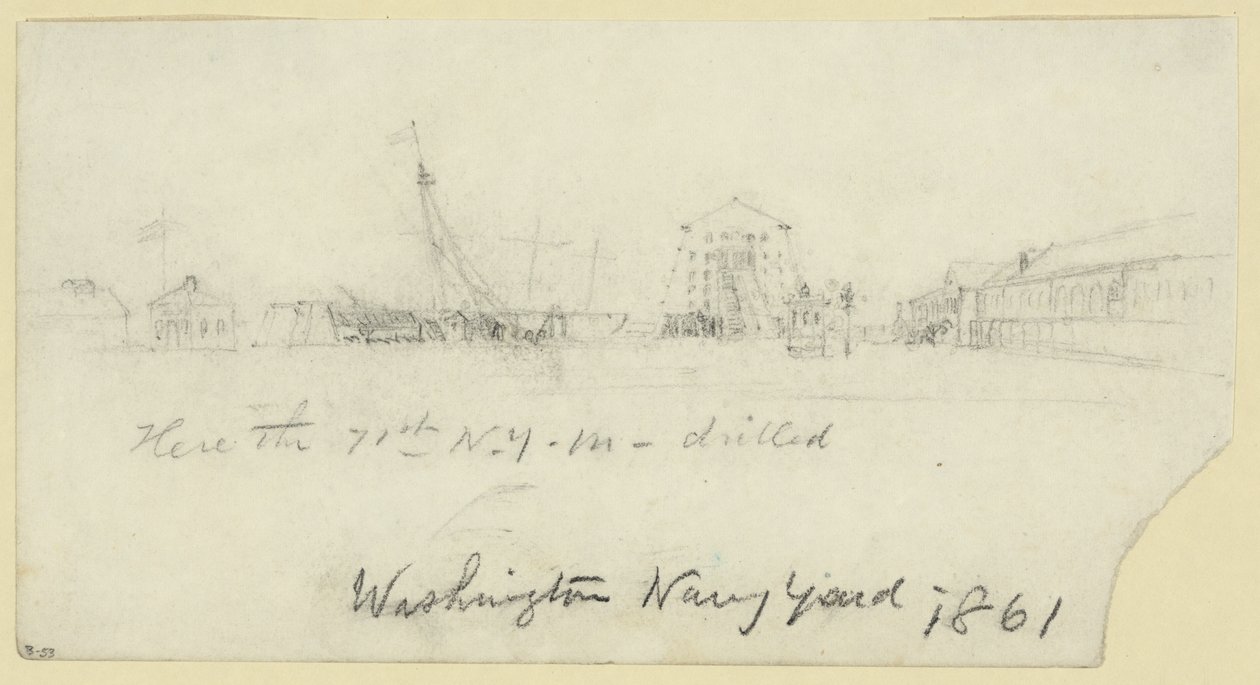 Here the 71st N.Y.M. drilled
Washington Navy Yard 1861
3-53